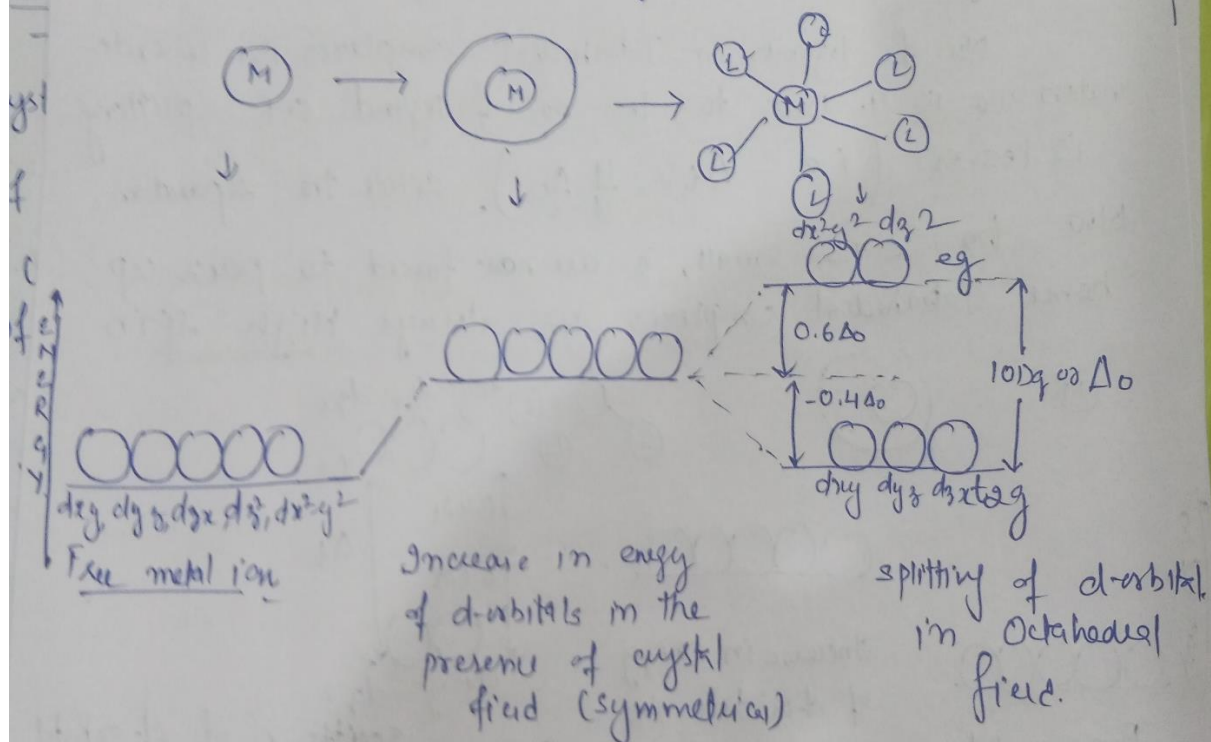 M → M → M L L L L L L
yst
f
dx²y² dz2
eg
0.6Δo
10Dq or Δo
-0.4Δo
ENERGY
dxy dyz dzx t2g
dxy, dyz, dzx, dz², dx²-y²
Free metal ion
Increase in enegy
of d-orbitals in the
presence of crystal
field (symmetrical)
splitting of d-orbital.
in Octahedral
field.